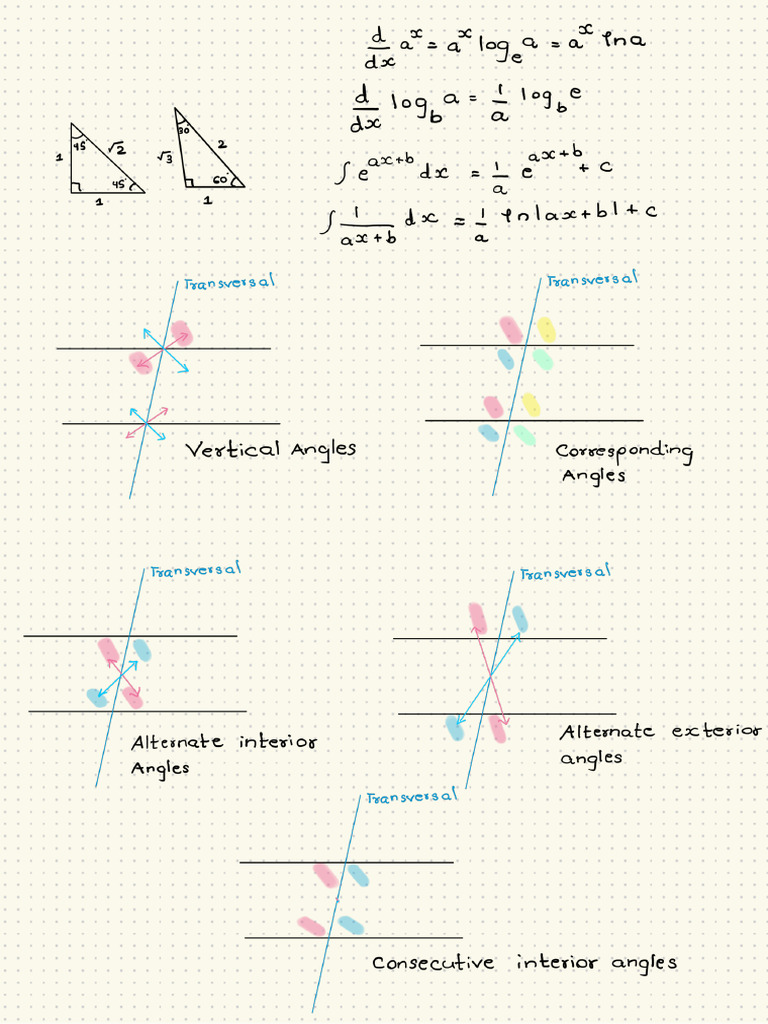 d/dx a^x = a^x log_e a = a^x ln a
d/dx log_b a = 1/a log_b e
∫ e^(ax+b) dx = 1/a e^(ax+b) + c
∫ 1/(ax+b) dx = 1/a ln|ax+b| + c
45° √2 1 45° 1
30° 2 √3 60° 1
Transversal
Vertical Angles
Transversal
Corresponding
Angles
Transversal
Alternate interior
Angles
Transversal
Alternate exterior
angles
Transversal
Consecutive interior angles